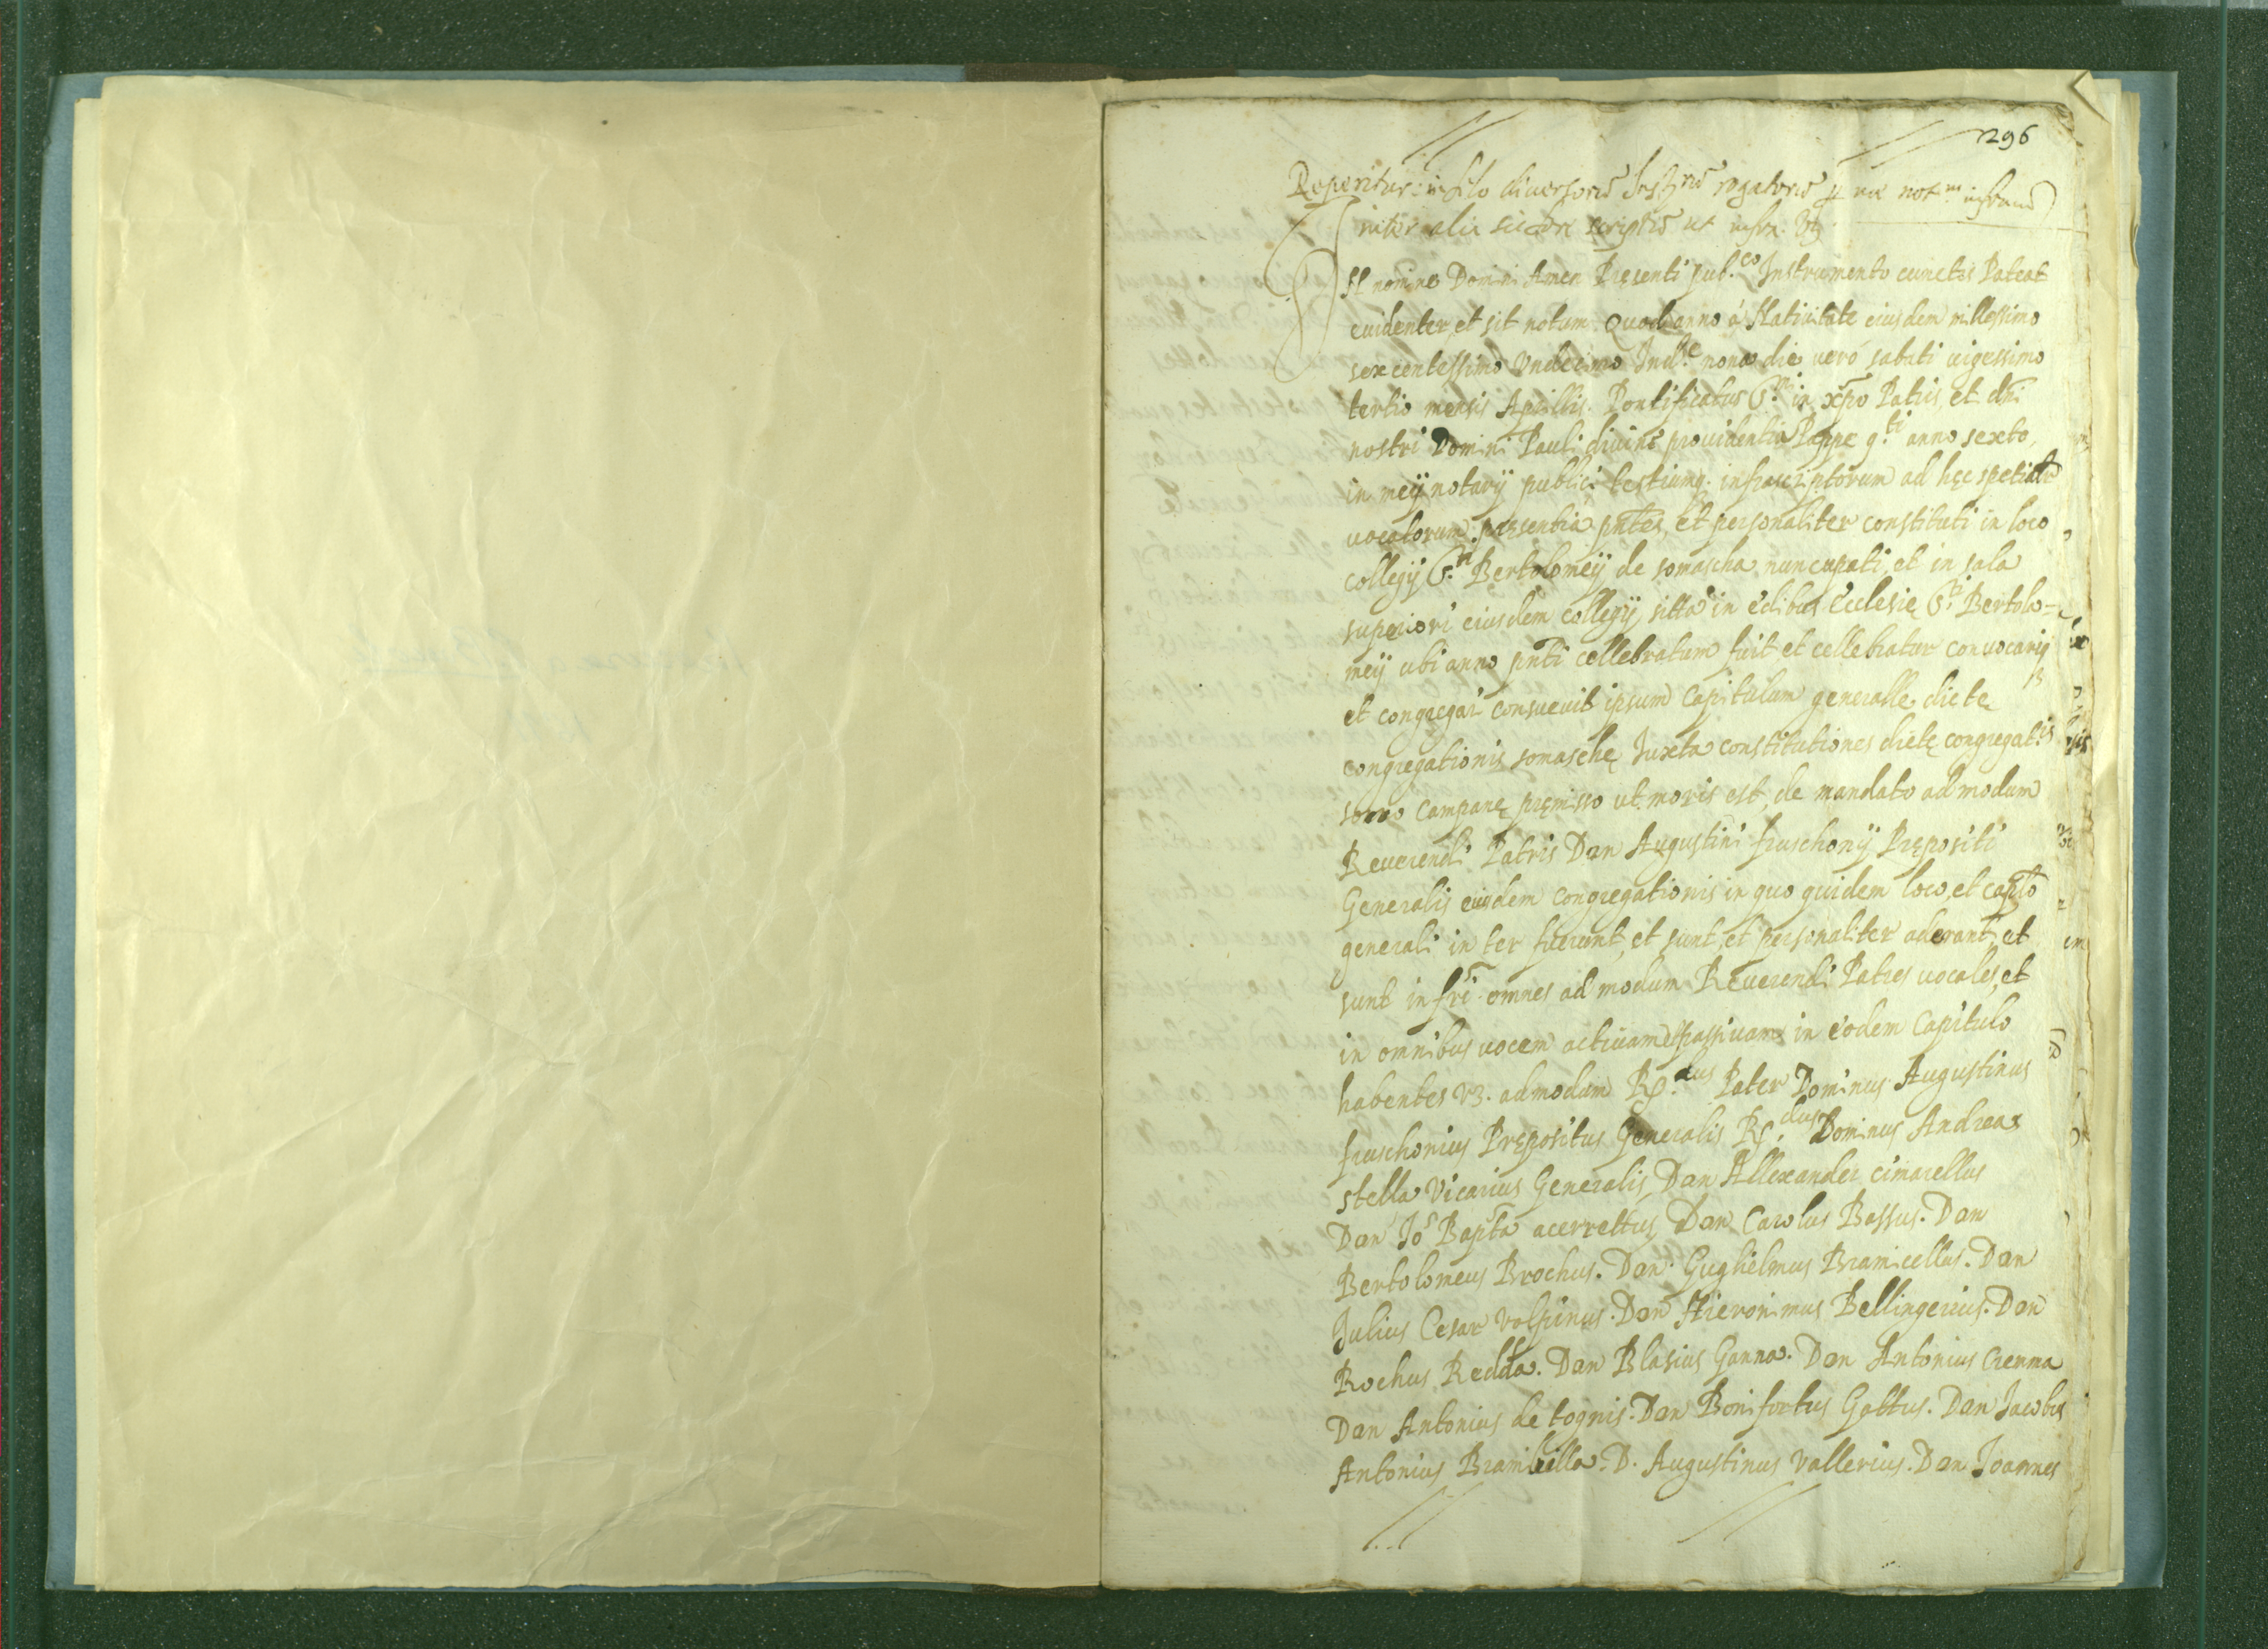 296
Reperitur in filo diversorū Instrū rogatorū p me notm infrum
inter alia sic scriptū ut infra. vz
IN nomine Domini Amen Presenti pub.co Instrumento cunctis Pateat
euidenter, et sit notum Quod anno á Natiuitate eiusdem millessimo
sexcentessimo Vndecimo Ind.e nona die veró sabati uigessimo
tertio mensis Aprillis. Pontificatus S.mi in xp̄o Patris, et dn̄i
nostri Domini Pauli diuina prouidentia Pappe q.ti anno sexto,
in meij notarij publici testiumq. infrascriptorum ad hęc spetialr̄
uocatorum presentia pn̄tes, et personaliter constituti in loco
collegij S.ti Bertolomeij de somascha nuncupati, et in sala
superiori eiusdem collegij, sitta in edibus Ecclesię S.ti Bertolo-
meij ubi anno pn̄ti cellebratum fuit, et cellebratur conuocarij
et congregari consueuit ipsum Capitulum generalle dicte
congregationis somaschę Juxta constitutiones dictę congregat.is
sono campanę pręmisso ut moris est, de mandato ad modum
Reuerendi Patris Don Augustini fruschonij Prępositi
Generalis eiusdem congregationis in quo quidem loco, et caplō
generali in ter fuerunt, et sunt, et personaliter aderant, et
sunt infrī omnes ad modum Reuerendi Patres uocales, et
in omnibus uocem actiuam et passiuam in eodem Capitulo
habentes vz. admodum R.dus Pater Dominus Augustinus
fruschonius Prępositus Generalis R.dus Dominus Andreas
stella Vicarius Generalis, Don Allexander cimarellus
Don Jō Bapta acerrettus, Don Carolus Bossus. Don
Bertolomeus Brochus. Don Guglielmus Bramicellus. Don
Julius Cesar Volpinus. Don Hieronimus Bellingerius. Don
Rochus Redda. Don Blasius Ganna. Don Antonius Crenna
Don Antonius de tognis. Don Bonifortus Gattus. Don Jacobus
Antonius Brambilla. D. Augustinus Vallerius. Don Joannes